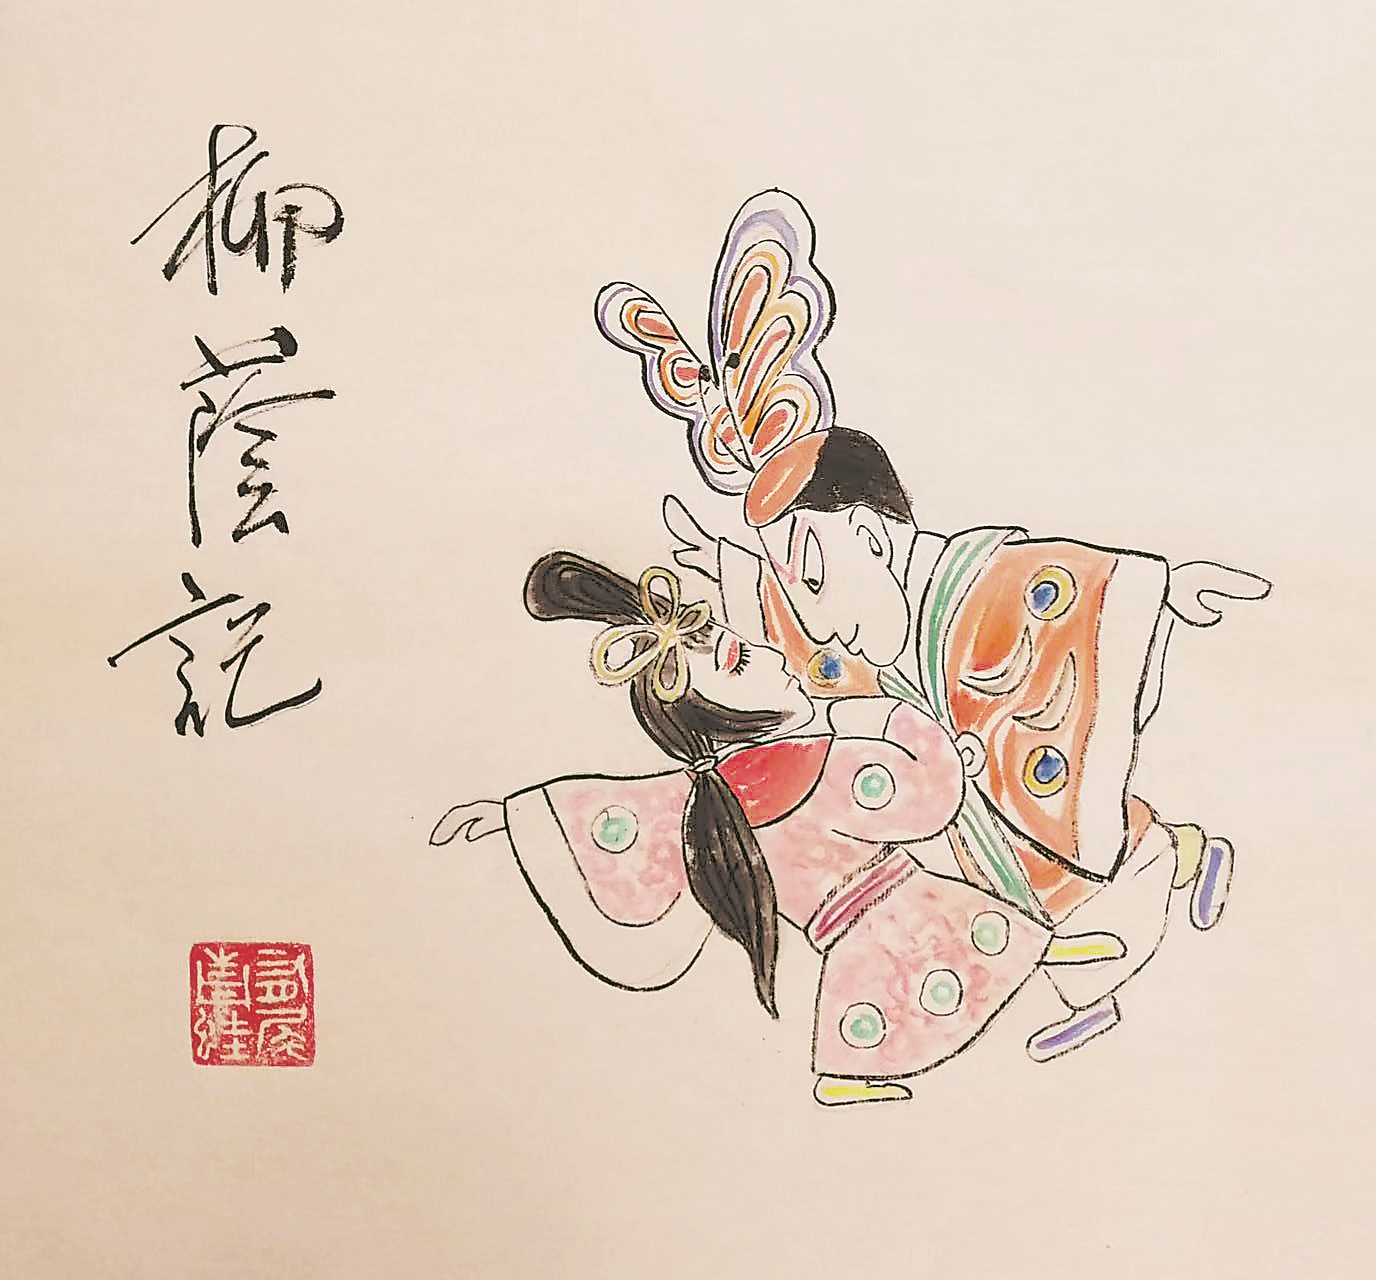 柳蔭記